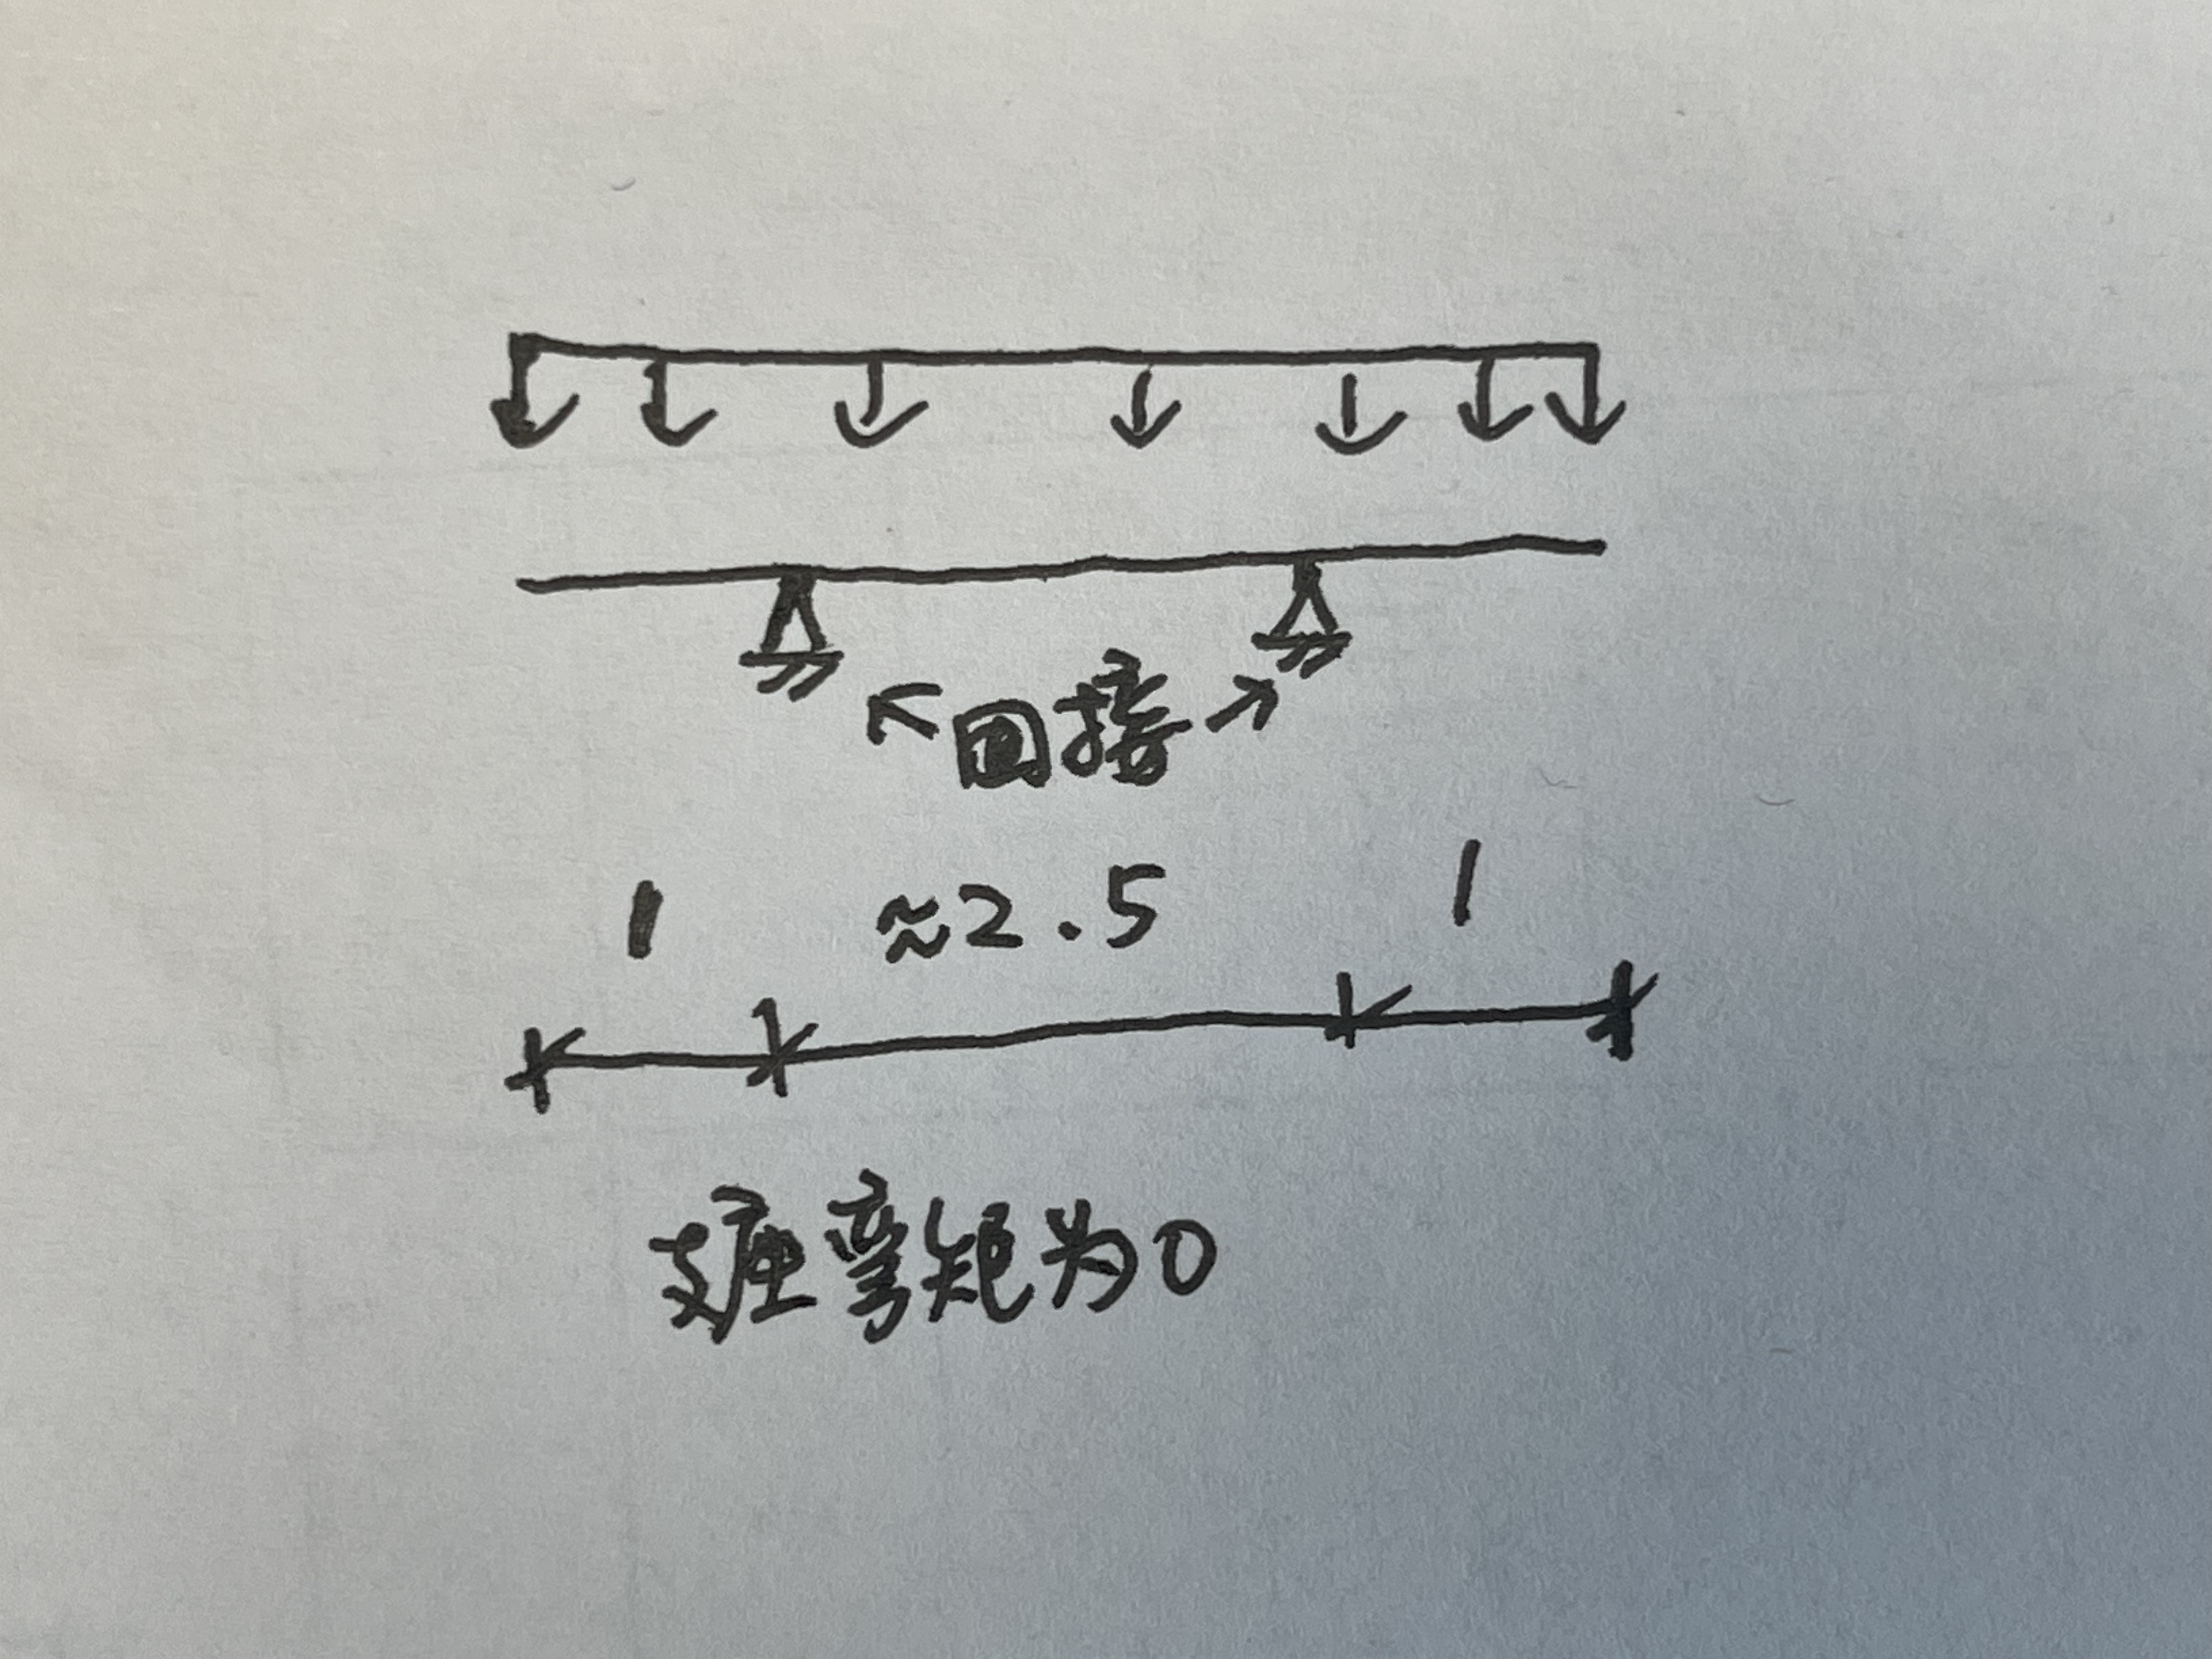 固接
1 ≈2.5 1
支座弯矩为0